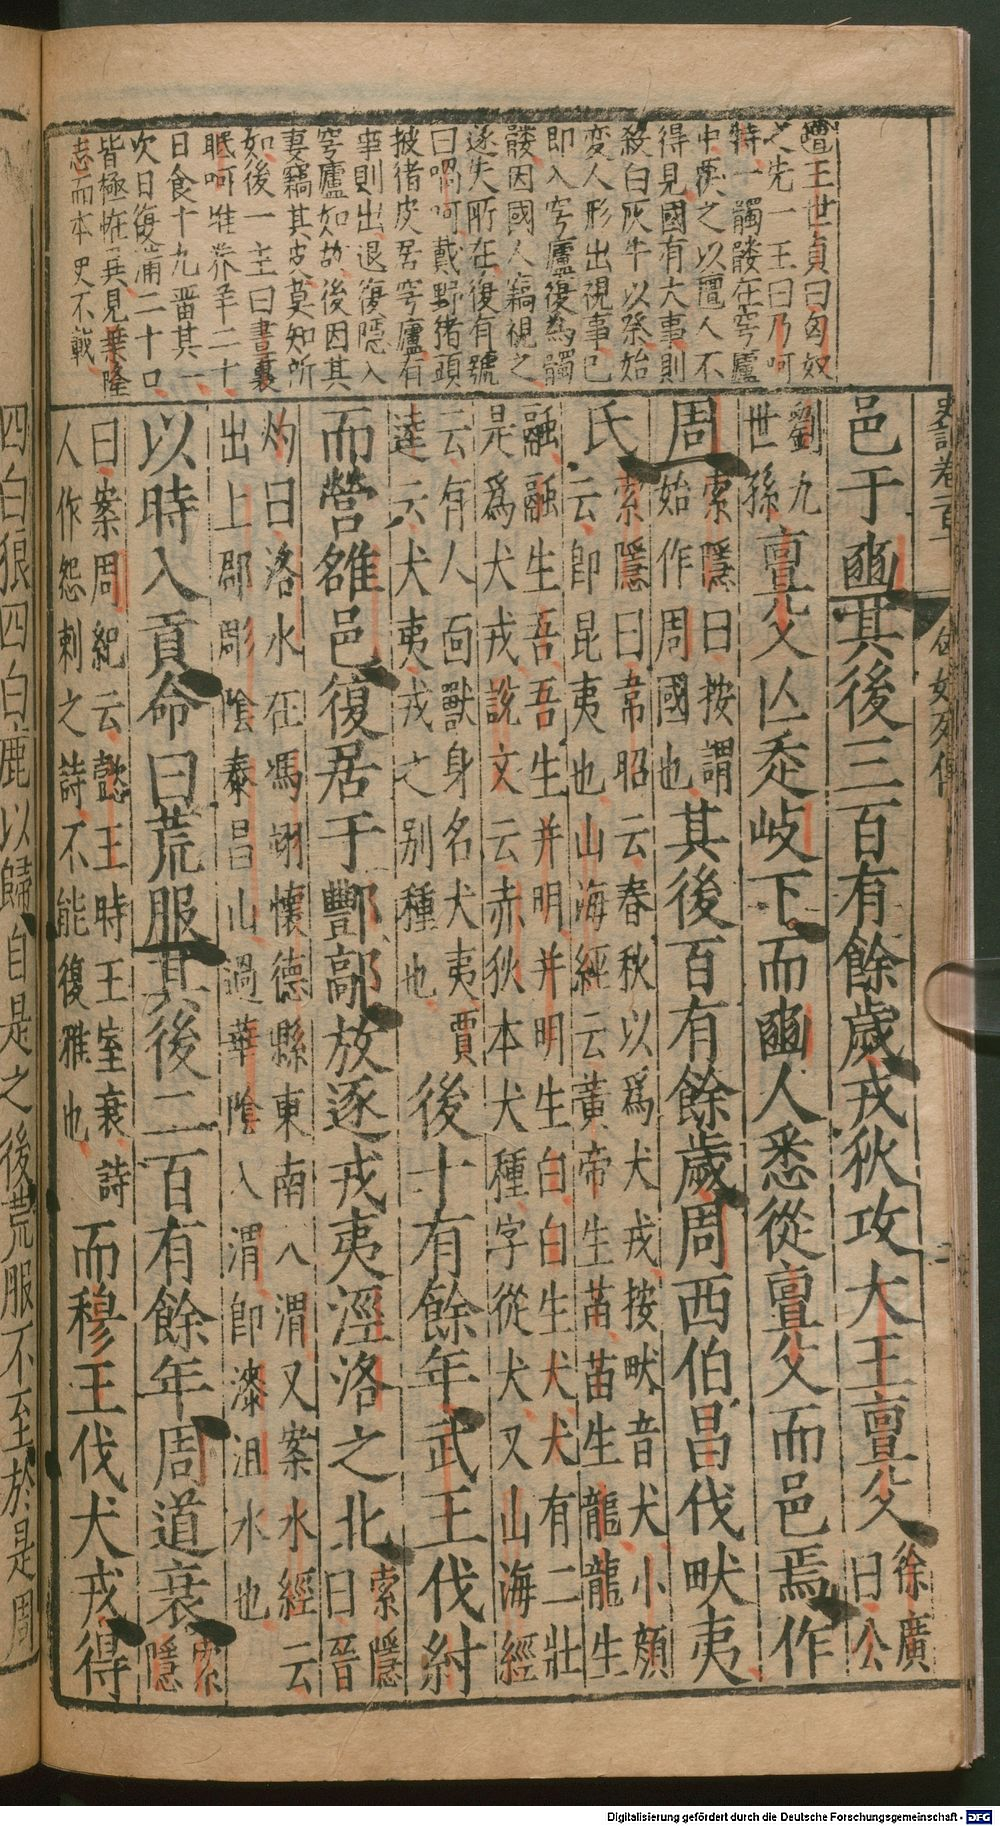 史記卷一百十 匈奴列傳 二
王世貞曰匈奴
之先一王曰乃呵
特一髑髏在穹廬
中覆之以氊人不
得見國有大事則
殺白灰牛以祭始
変人形出視事已
即入穹廬復為髑
髏因國人竊視之
遂失所在復有號
曰喎呵戴野猪頭
披猪皮居穹廬有
事則出退復隱入
穹廬如故後因其
妻竊其皮莫知所
如後一主曰晝裏
昏呵惟養羊二十
日食十九畱其一
次日復滿二十口
皆極怪異見華隆
志而本史不載
邑于豳其後三百有餘歲戎狄攻大王亶父徐廣曰公
劉九世孫亶父亾走岐下而豳人悉從亶父而邑焉作
周索隱曰按謂始作周國也其後百有餘歲周西伯昌伐畎夷
氏索隱曰韋昭云春秋以爲犬戎按畎音犬小顔云卽昆夷也山海經云黃帝生苗苗生龍龍生
融融生吾吾生并明并明生白白生犬犬有二壯是爲犬戎說文云赤狄本犬種字從犬又山海經
云有人面獸身名犬夷賈逵云犬夷戎之别種也後十有餘年武王伐紂
而營雒邑復居于酆鄗放逐戎夷涇洛之北索隱曰晉
灼曰洛水在馮翊懷德縣東南入渭又案水經云出上郡彫陰泰昌山過華陰入渭卽漆沮水也
以時入貢命曰荒服其後二百有餘年周道衰索隱
曰案周紀云懿王時王室衰詩人作怨刺之詩不能復雅也而穆王伐犬戎得
四白狼四白鹿以歸自是之後荒服不至於是周
Digitalisierung gefördert durch die Deutsche Forschungsgemeinschaft - DFG